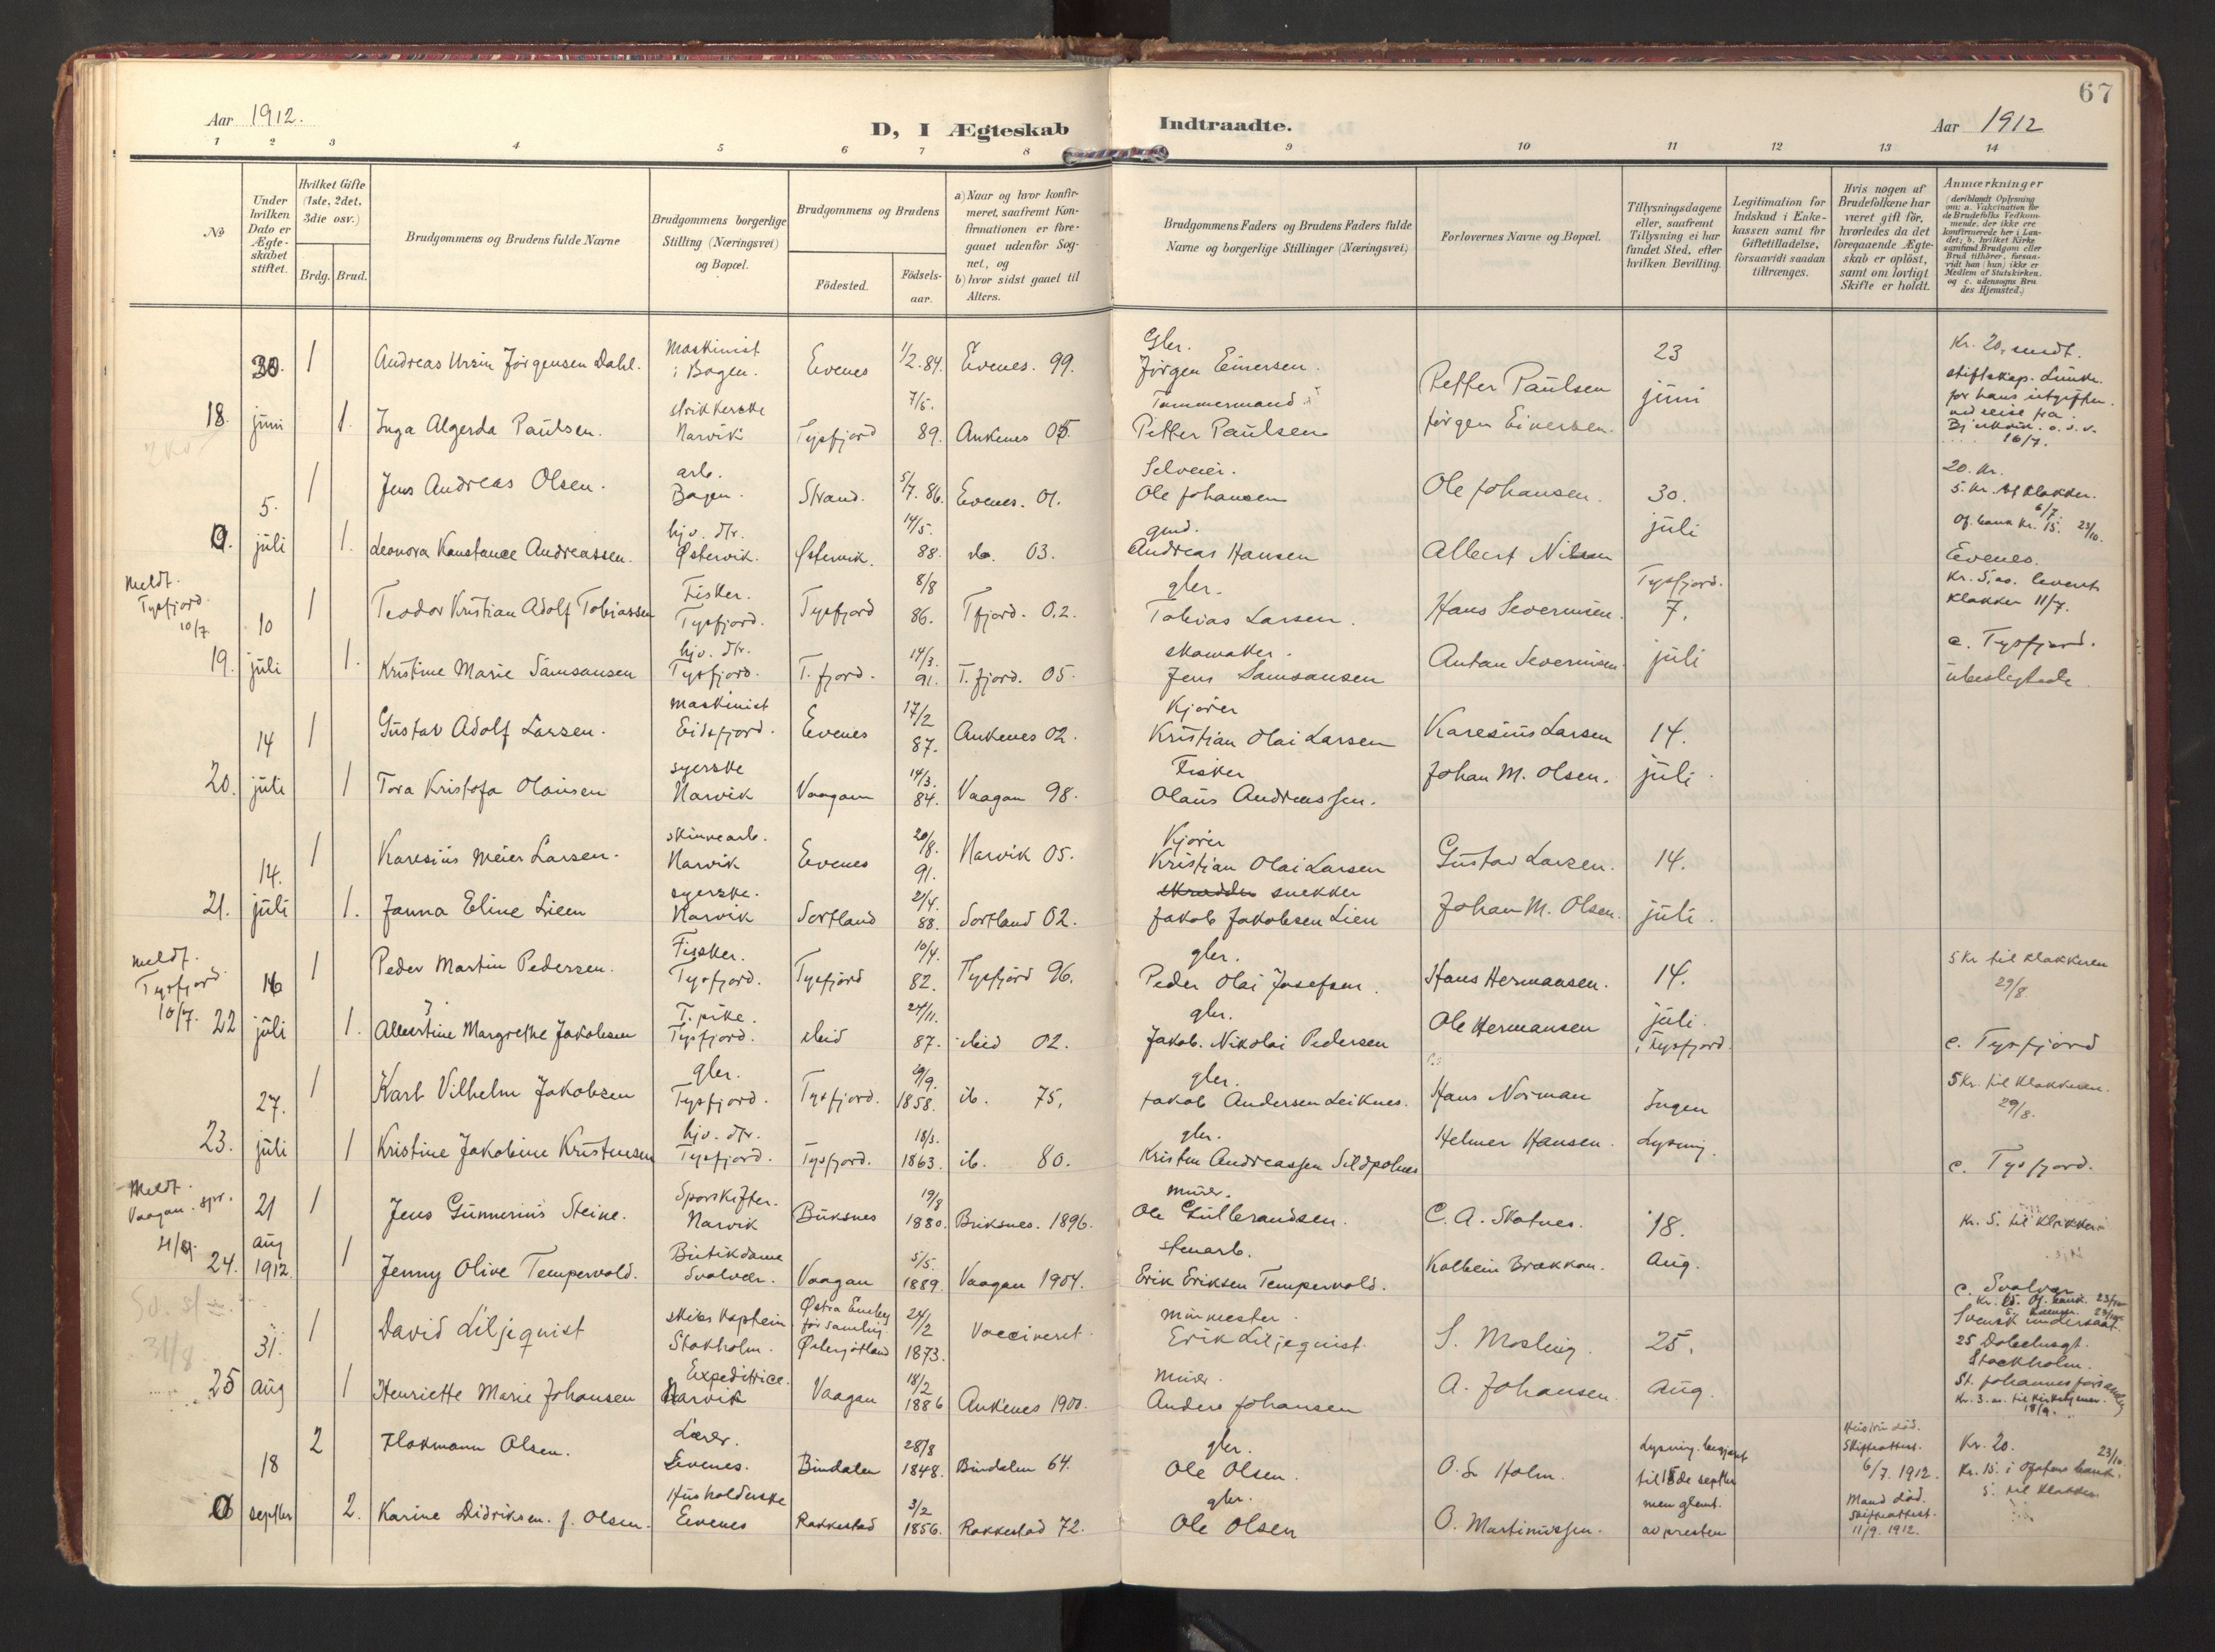 67
Aar 1912.
D, I Ægteskab Indtraadte.
Aar 1912
1 2 3 4 5 6 7 8 9 10 11 12 13 14
No
Under hvilken Dato er Ægteskabet stiftet.
Hvilket Gifte (1ste, 2det, 3die osv.)
Brdg. Brud.
Brudgommens og Brudens fulde Navne
Brudgommens borgerlige Stilling (Næringsvei) og Bopæl.
Brudgommens og Brudens
Födested. Födselsaar.
a) Naar og hvor konfirmeret, saafremt Konfirmationen er foregaaet udenfor Sognet, og
b) hvor sidst gaaet til Alters.
Brudgommens Faders og Brudens Faders fulde Navne og borgerlige Stillinger (Næringsvei)
Forlovernes Navne og Bopæl.
Tillysningsdagene eller, saafremt Tillysning ei har fundet Sted, efter hvilken Bevilling.
Legitimation for Indskud i Enkekassen samt for Giftetilladelse, forsaavidt saadan tiltrænges.
Hvis nogen af Brudefolkene har været gift för, hvorledes da det foregaaende Ægteskab er oplöst, samt om lovligt Skifte er holdt.
Anmærkninger
(deriblandt Oplysning om: a. Vakcination for de Brudefolks Vedkommende, der ikke ere konfirmerede her i Landet; b. hvilket Kirkesamfund Brudgom eller Brud tilhörer, forsaavidt han (hun) ikke er Medlem af Statskirken, og c. udensogns Brudes Hjemsted.)
30. 1 Andreas Ursin Jörgensen Dahl. Maskinist i Bogen. Evenes 1/2. 84. Evenes. 99. Gbr. Jörgen Einersen. Petter Paulsen 23 Kr. 20, sendt.
18. juni 1. Inga Algerda Paulsen. strikkerske Narvik Tysfjord 7/5. 89. Ankenes 05. Tømmermand Petter Paulsen Jörgen Einersen. juni
stiftskap.
for hans utgifter
ved reise fra
o.s.v.
16/7.
5. 1 Jens Andreas Olsen. arb. Bogen. Strand. 5/7. 86. Evenes. 01. Selveier. Ole Johansen Ole Johansen. 30. 20. Kr.
5. Kr. til klokker. 6/7.
0. juli 1. Leonora Konstance Andreassen. hjv. dtr. Østervik. Østervik. 14/5. 88. do. 03. gmd. Andreas Hansen Albert Nilsen juli Of. bank kr. 15. 23/10.
Evenes.
Meldt. Tysfjord. 10/7.
10 1 Teodor Kristian Adolf Tobiassen Fisker. Tysfjord. Tysfjord 8/8 86. Tfjord. 02. gbr. Tobias Larsen. Hans Severinsen. Tysfjord. 7. Kr. 5,00. levert klokker 11/7.
19. juli 1. Kristine Marie Samsonsen hjv. dtr. Tysfjord. T. fjord. 14/3. 91. T. fjord. 05. skomaker. Jens Samsonsen Anton Severinsen. juli c. Tysfjord.
ubeslegtede
14 1 Gustav Adolf Larsen. maskinist Eidsfjord. Evenes 17/2 87. Ankenes 02. Kjører Kristian Olai Larsen Karesius Larsen 14.
20. juli 1 Tora Kristofa Olausen syerske Narvik Vaagan 14/3. 84. Vaagan 98. Fisker Olaus Andreassen. Johan M. Olsen. juli.
14. 1 Karesius Meier Larsen. skinnearb. Narvik Evenes 20/8. 91. Narvik 05. Kjører Kristian Olai Larsen Gustav Larsen. 14.
21. juli 1. Janna Eline Lien syerske. Narvik Sortland 21/4. 88. Sortland 02. skrædder snekker Jakob Jakobsen Lien Johan M. Olsen. juli.
meldt. Tysfjord. 10/7.
16 1 Peder Martin Pedersen. Fisker. Tysfjord. Tysfjord 10/4. 82. Tysfjord 96. gbr. Peder Olai Josefsen. Hans Hermansen. 14. 5 Kr til klokkeren 29/8.
22 juli 1. Albertine Margrethe Jakobsen T. pike. Tysfjord. ibid 24/11. 87. ibid 02. gbr. Jakob. Nikolai Pedersen Ole Hermansen juli. i Tysfjord. c. Tysfjord
27. 1 Karl Vilhelm Jakobsen gbr. Tysfjord. Tysfjord. 29/9. 1858. ib. 75. gbr. Jakob Andersen Leiknes. Hans Norman Ingen 5 Kr. til klokkeren. 29/8.
23. juli 1 Kristine Jakobine Kristensen hjv. dtr. Tysfjord. Tysfjord. 18/3. 1863. ib. 80. gbr. Kristen Andreassen Sildpolnes Helmer Hansen. Lysning. c. Tysfjord.
Meldt. Vaagan. spr. 21/9.
21 1 Jens Gunnerius Steine. Sporskifter. Narvik Buksnes 19/8 1880. Buksnes. 1896. murer. Ole Gulbrandsen. C. A. Skotnes. 18. Kr. 5. til klokker
24. aug 1912. 1 Jenny Olive Tempervold. Butikdame Svolvær. Vaagan 5/5. 1889. Vaagan 1904. stenarb. Erik Eriksen Tempervold. Kolbein Brækkan. Aug. c. Svolvær
31/8
31. 1 David Liljequist skibskaptein Stokholm. Østra församling. Østergötland 24/2 1873. Vaccineret. murmester. Erik Liljequist. S. Mosling. 25. Kr. 15. Of. bank. 23/10
Svensk undersaat.
25 aug 1 Henriette Marie Johansen Expeditrice. Narvik Vaagan 18/2 1886 Ankenes 1900. murer. Anders Johansen A. Johansen. Aug. Stockholm.
St. Johannes församling
18/9.
18 2 Hokmann Olsen. Lærer. Evenes. Bindalen 28/8 1848. Bindalen 64. gbr. Ole Olsen. O. S. Holm. Lysning begjært til 15de septbr Hustru död. Skifteattest. 6/7. 1912. Kr. 20. 23/10.
Kr. 15. i Ofotens bank.
0 septbr 2. Karine Didriksen. f. Olsen. Husholderske Evenes Rakkestad 3/2 1856. Rakkestad 72. gbr. Ole Olsen O. Martinussen. men glemt. av presten Mand död. Skifteattest. 11/9. 1912. 5. til klokker